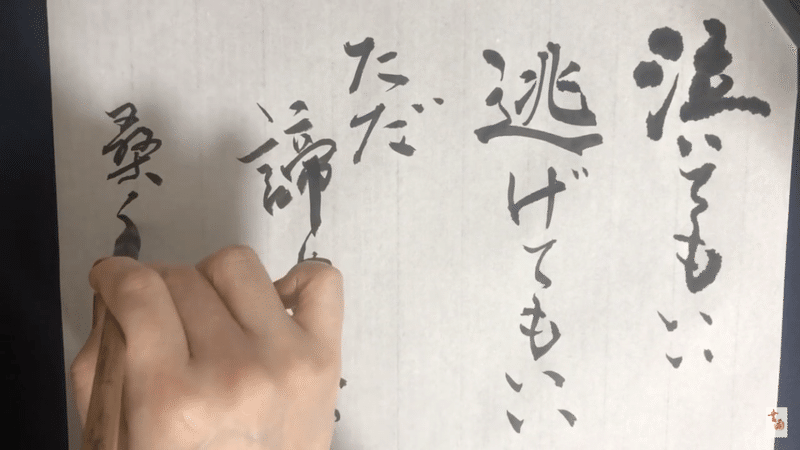 泣いてもいい
逃げてもいい
ただ
諦
桑